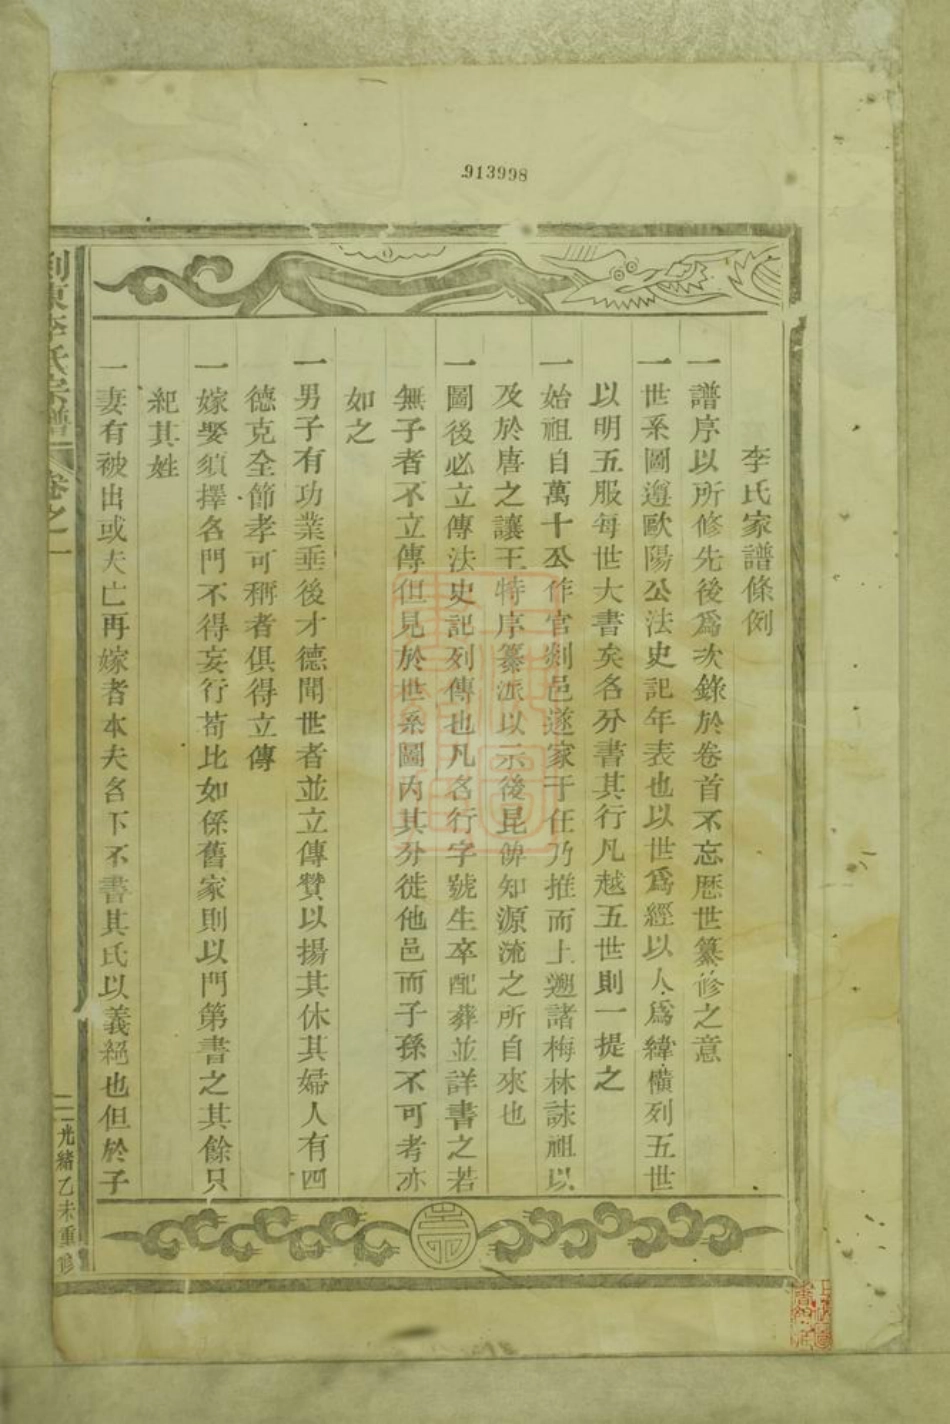 913998
李氏家譜條例
一譜序以所修先後爲次錄於卷首不忘歷世纂修之意
一世系圖遵歐陽公法史記年表也以世爲經以人爲緯橫列五世
以明五服每世大書矣各分書其行凡越五世則一提之
一始祖自萬十公作官剡邑遂家于任乃推而上遡諸梅林誄祖以
及於唐之讓王特序纂派以示後昆俾知源流之所自來也
一圖後必立傳法史記列傳也凡名行字號生卒配葬並詳書之若
無子者不立傳但見於世系圖內其分徙他邑而子孫不可考亦
如之
一男子有功業垂後才德聞世者並立傳贊以揚其休其婦人有四
德克全節孝可稱者俱得立傳
一嫁娶須擇名門不得妄行苟比如係舊家則以門第書之其餘只
紀其姓
一妻有被出或夫亡再嫁者本夫名下不書其氏以義絕也但於子
剡東李氏宗譜 卷之一
光緒乙未重修